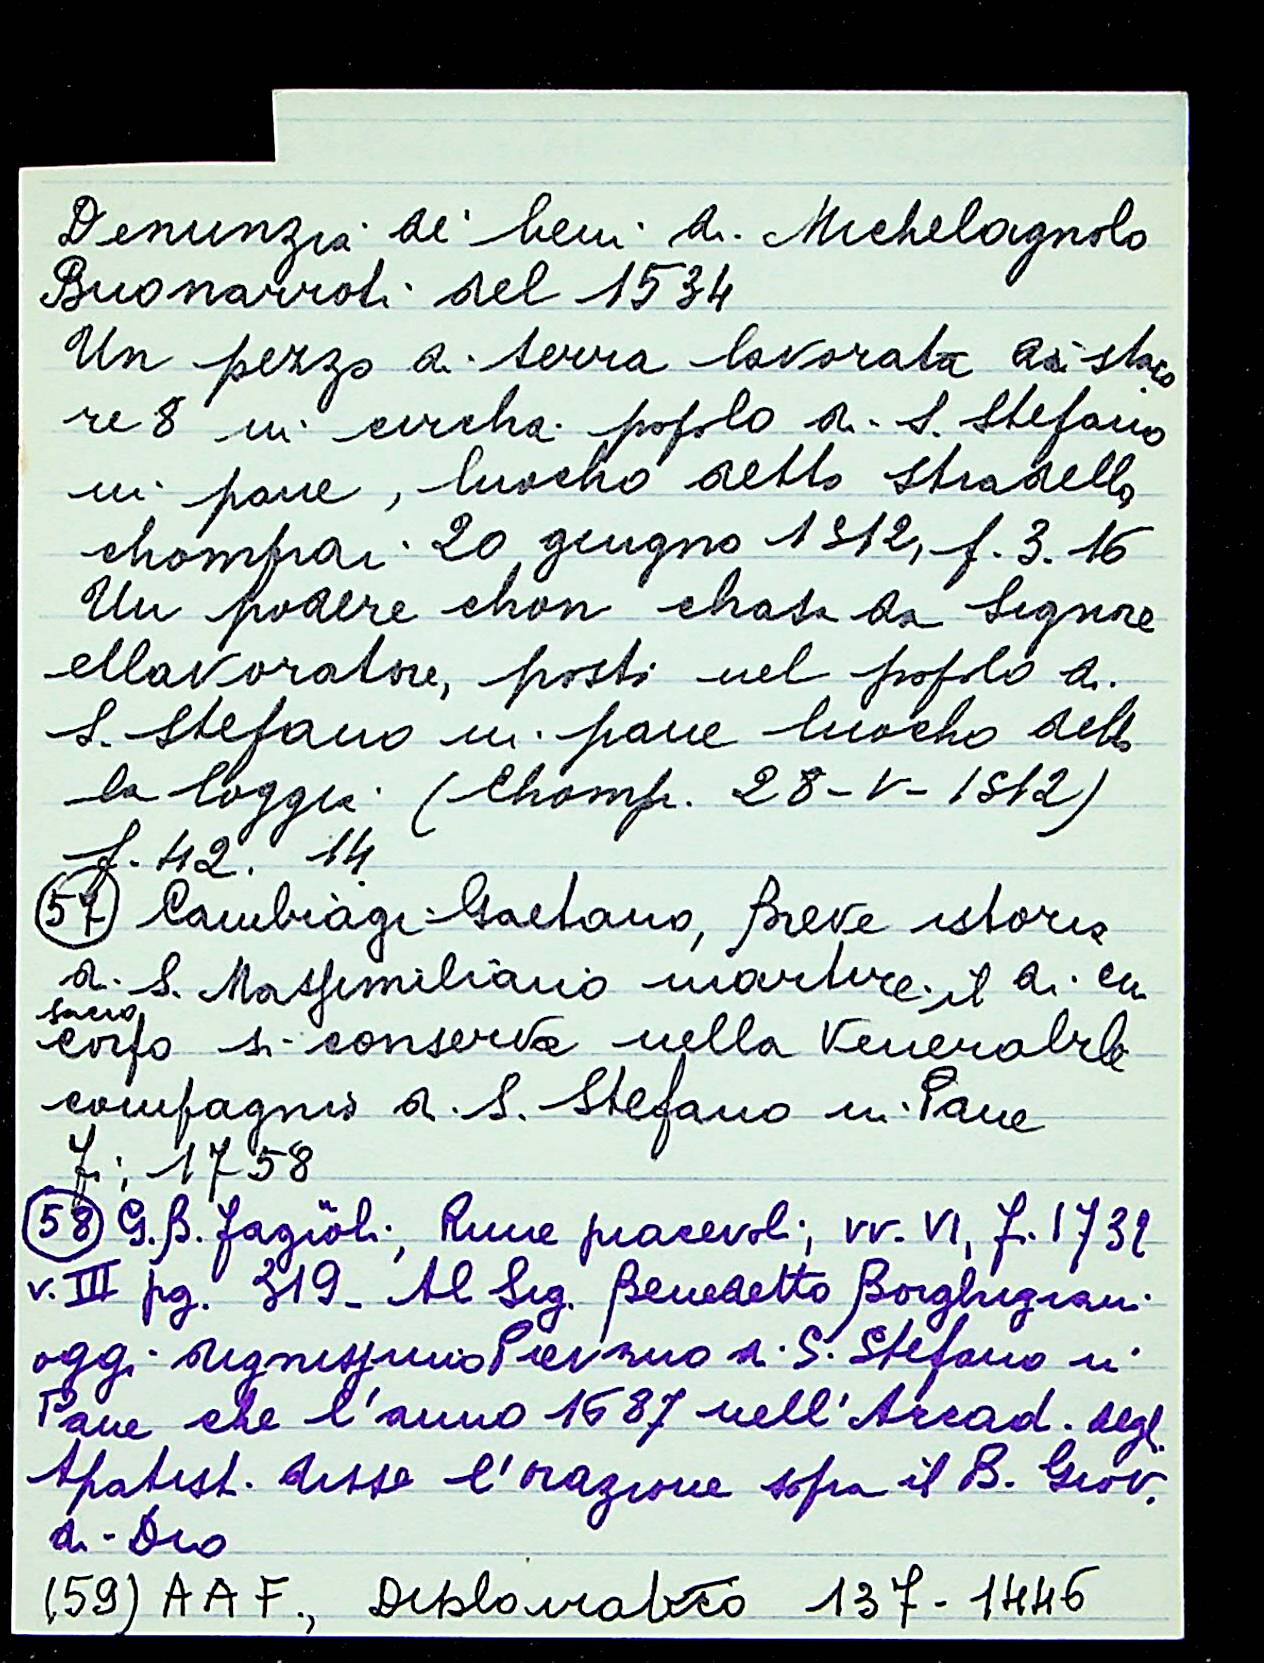 Denunzia de' beni di Michelagnolo
Buonarroti del 1534
Un pezzo di terra lavorata di staco
re 8 in circha popolo di S. Stefano
in pane, luocho detto stradella
chomprai 20 giugno 1512, f. 3. 16
Un podere chon chasa da Signore
ellavoratore, posto nel popolo di
S. Stefano in pane luocho detto
la loggia (Chomp. 28-V-1512)
f. 42. 14
(57) Cambiagi Gaetano, Breve istoria
di S. Massimiliano martire il di cu
sacro
corpo si conserva nella Venerabile
compagnia di S. Stefano in Pane
Fi; 1758
(58) G.B. Fagioli, Rime piacevoli; vv. VI, F. 1732
v. III pg. 319 - Al Sig. Benedetto Borghigiani
oggi dignissimo Pievano di S. Stefano in
Pane che l'anno 1687 nell'Accad. degl.
Apatist. disse l'orazione sopra il B. Giov.
di Dio
(59) A A F., Diplomatico 137-1446